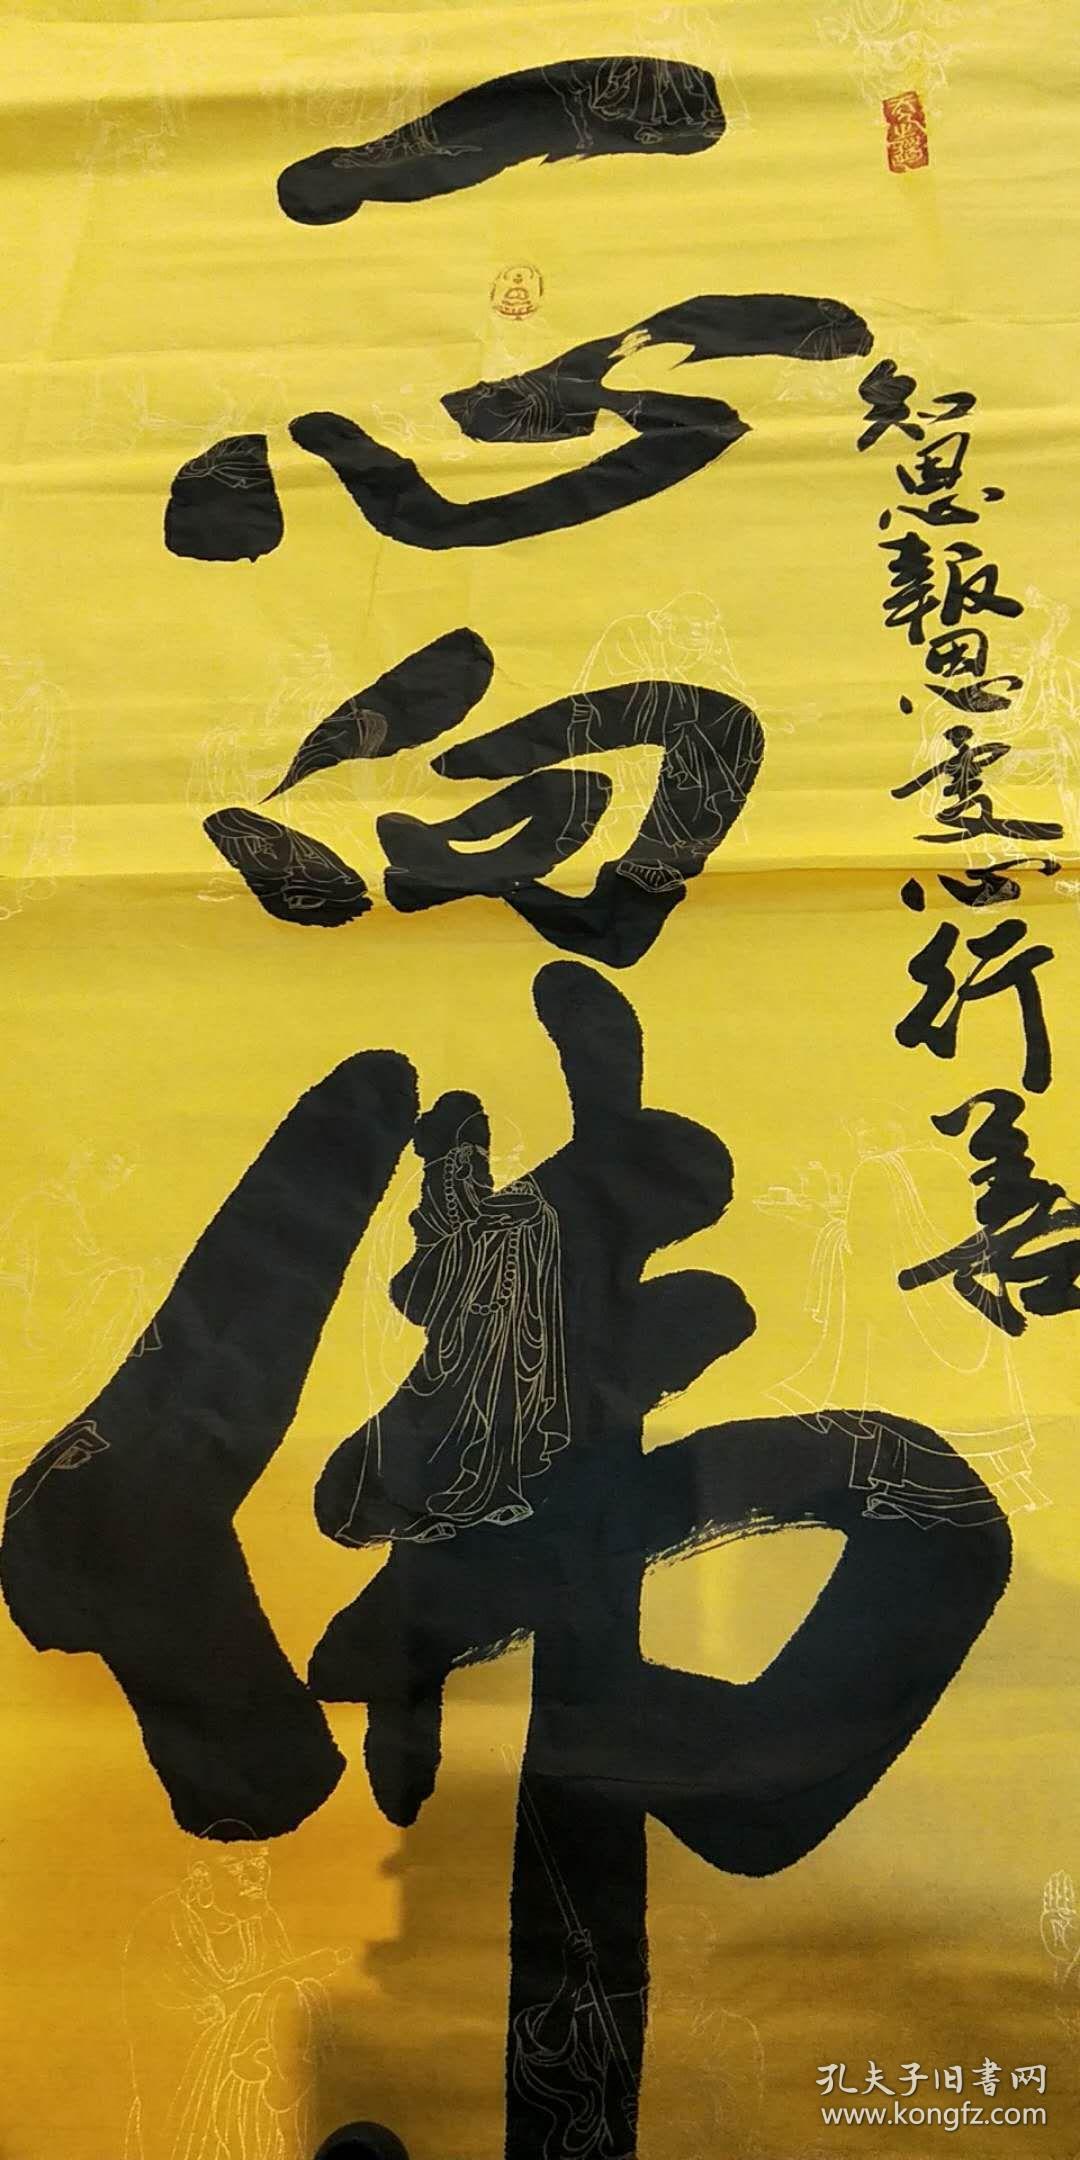 一心向佛
知恩報恩愛心行善
孔夫子旧書网
www.kongfz.com